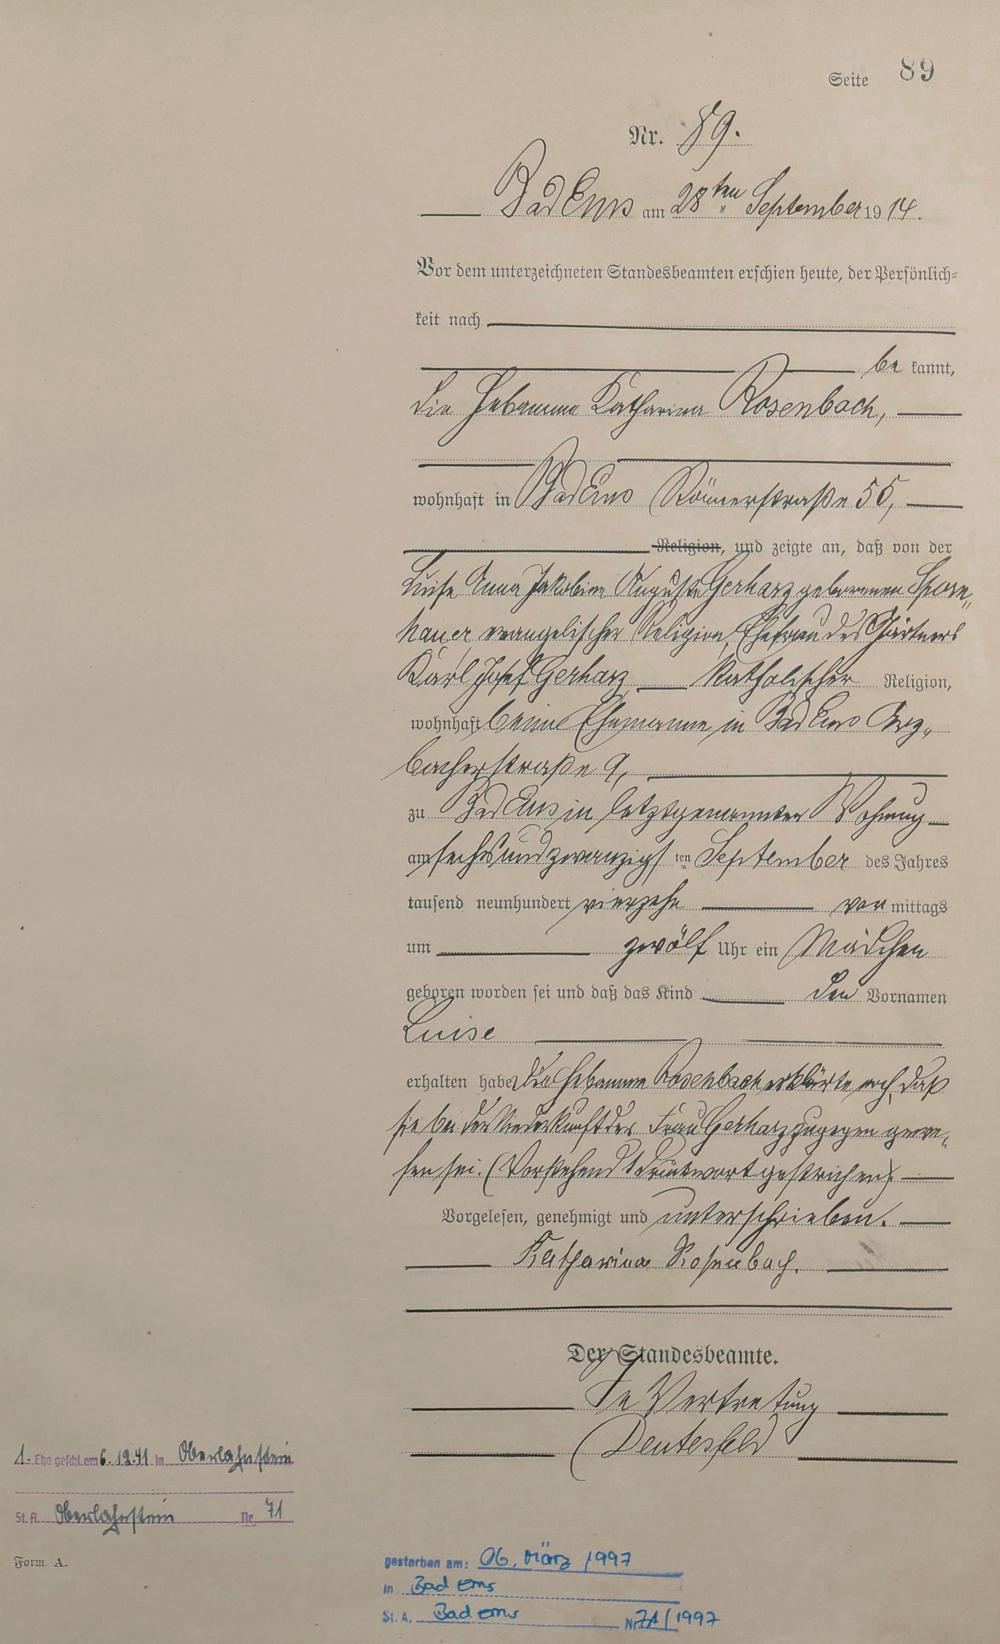 Seite 89
Nr. 89.
Bad Ems am 28ten September 1914.
Vor dem unterzeichneten Standesbeamten erschien heute, der Persönlich-
keit nach
be kannt,
die Hebamme Katharina Rosenbach,
wohnhaft in Bad Ems Römerstraße 55,
Religion, und zeigte an, daß von der
Luise Anna Jakobine Auguste Gerharz geborenen Sporn-
hauer evangelischer Religion, Ehefrau des Gärtners
Karl Josef Gerharz katholischer Religion,
wohnhaft beim Ehemanne in Bad Ems Arz-
bacherstraße 9,
zu Bad Ems in letztgenannter Wohnung
am sechsundzwanzigsten September des Jahres
tausend neunhundert vierzehn vor mittags
um zwölf Uhr ein Mädchen
geboren worden sei und daß das Kind den Vornamen
Luise
erhalten habe. Die Hebamme Rosenbach erklärte noch, daß
sie bei der Niederkunft der Frau Gerharz zugegen gewe-
sen sei. (Vorstehend 1 Druckwort gestrichen)
Vorgelesen, genehmigt und unterschrieben.
Katharina Rosenbach.
Der Standesbeamte.
In Vertretung
1. Ehe geschl. am 6.12.41 in Oberlahnstein
St. A. Oberlahnstein Nr 71
Form. A.
gestorben am: 06. März 1997
in Bad Ems
St. A. Bad Ems Nr 71/1997